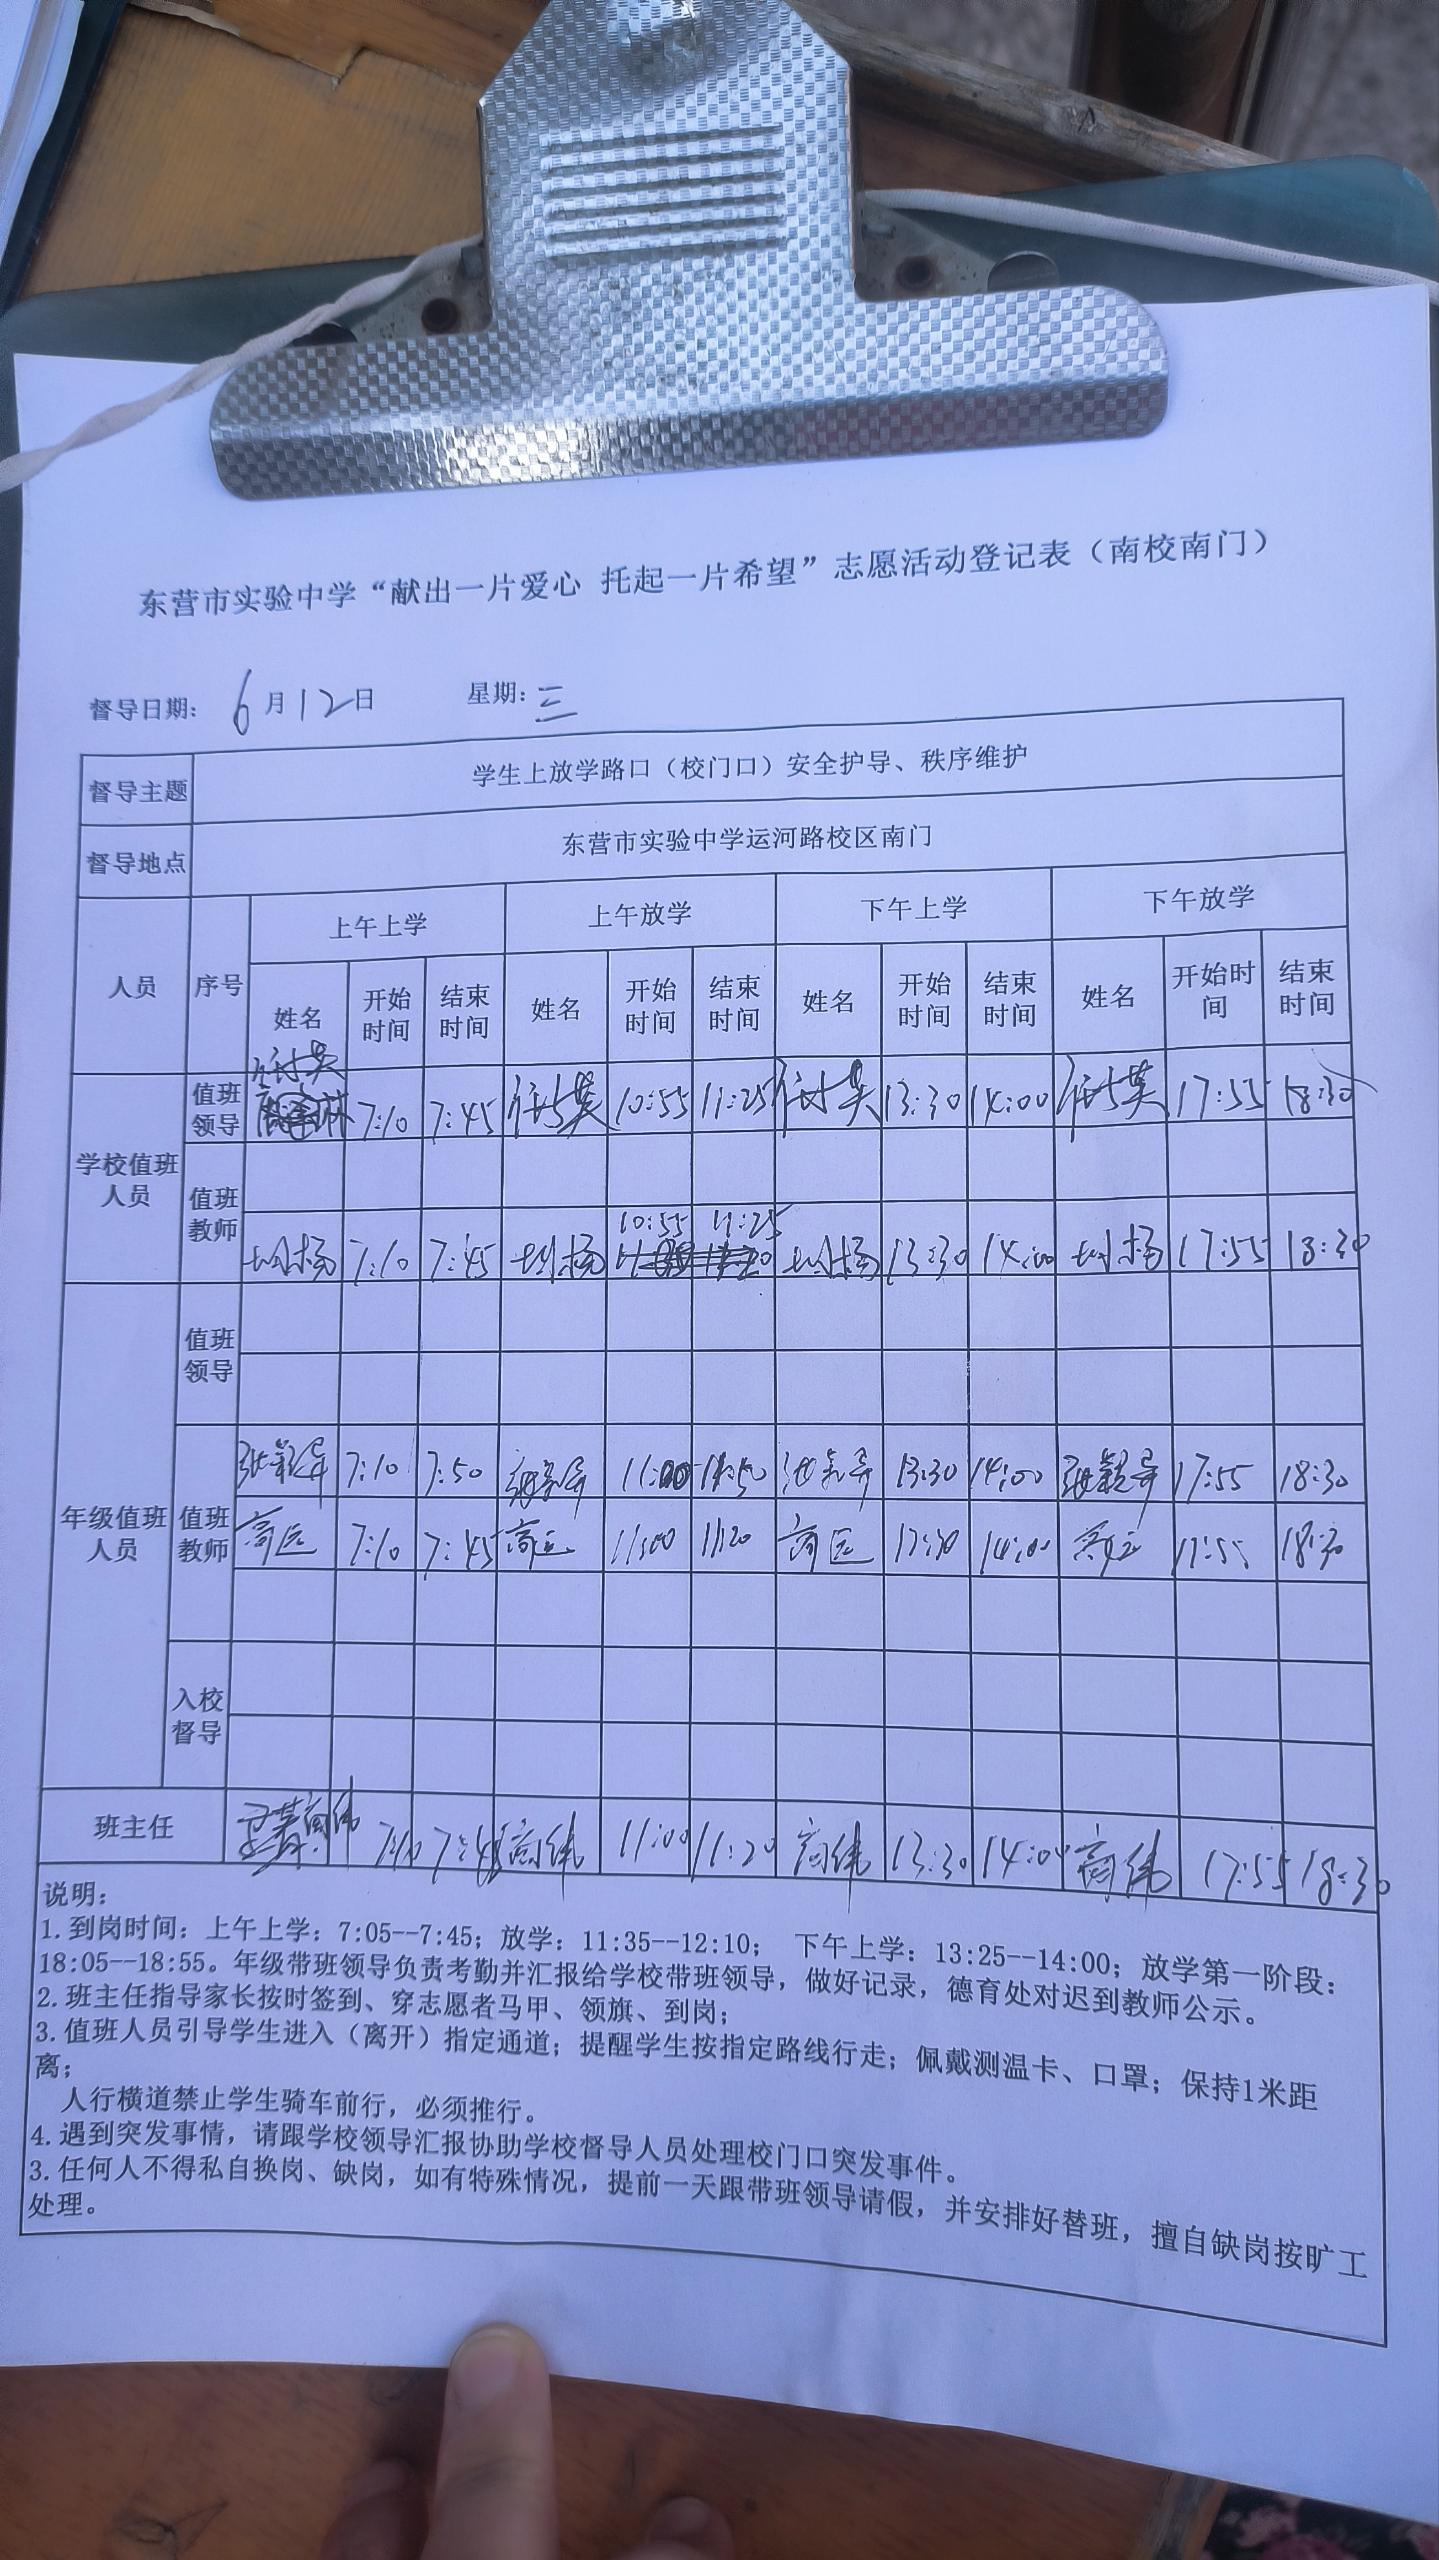 东营市实验中学“献出一片爱心 托起一片希望”志愿活动登记表（南校南门）
督导日期: 6月12日 星期: 三
督导主题 学生上放学路口（校门口）安全护导、秩序维护
督导地点 东营市实验中学运河路校区南门
人员 序号 上午上学 上午放学 下午上学 下午放学
姓名 开始时间 结束时间 姓名 开始时间 结束时间 姓名 开始时间 结束时间 姓名 开始时间 结束时间
学校值班人员
值班领导 7:10 7:45 10:55 11:25 13:30 14:00 17:55 18:30
值班教师
10:55 11:25
7:10 7:45 13:30 14:00 17:55 18:30
年级值班人员
值班领导
值班教师
7:10 7:50 11:00 11:50 13:30 14:00 17:55 18:30
高远 7:10 7:45 高远 11:00 11:20 高远 13:30 14:00 高远 17:55 18:30
入校督导
班主任 商伟 7:10 7:45 商伟 11:00 11:20 商伟 13:30 14:00 商伟 17:55 18:30
说明：
1.到岗时间：上午上学：7:05--7:45；放学：11:35--12:10； 下午上学：13:25--14:00；放学第一阶段：
18:05--18:55。年级带班领导负责考勤并汇报给学校带班领导，做好记录，德育处对迟到教师公示。
2.班主任指导家长按时签到、穿志愿者马甲、领旗、到岗；
3.值班人员引导学生进入（离开）指定通道；提醒学生按指定路线行走；佩戴测温卡、口罩；保持1米距
离；
人行横道禁止学生骑车前行，必须推行。
4.遇到突发事情，请跟学校领导汇报协助学校督导人员处理校门口突发事件。
3.任何人不得私自换岗、缺岗，如有特殊情况，提前一天跟带班领导请假，并安排好替班，擅自缺岗按旷工
处理。